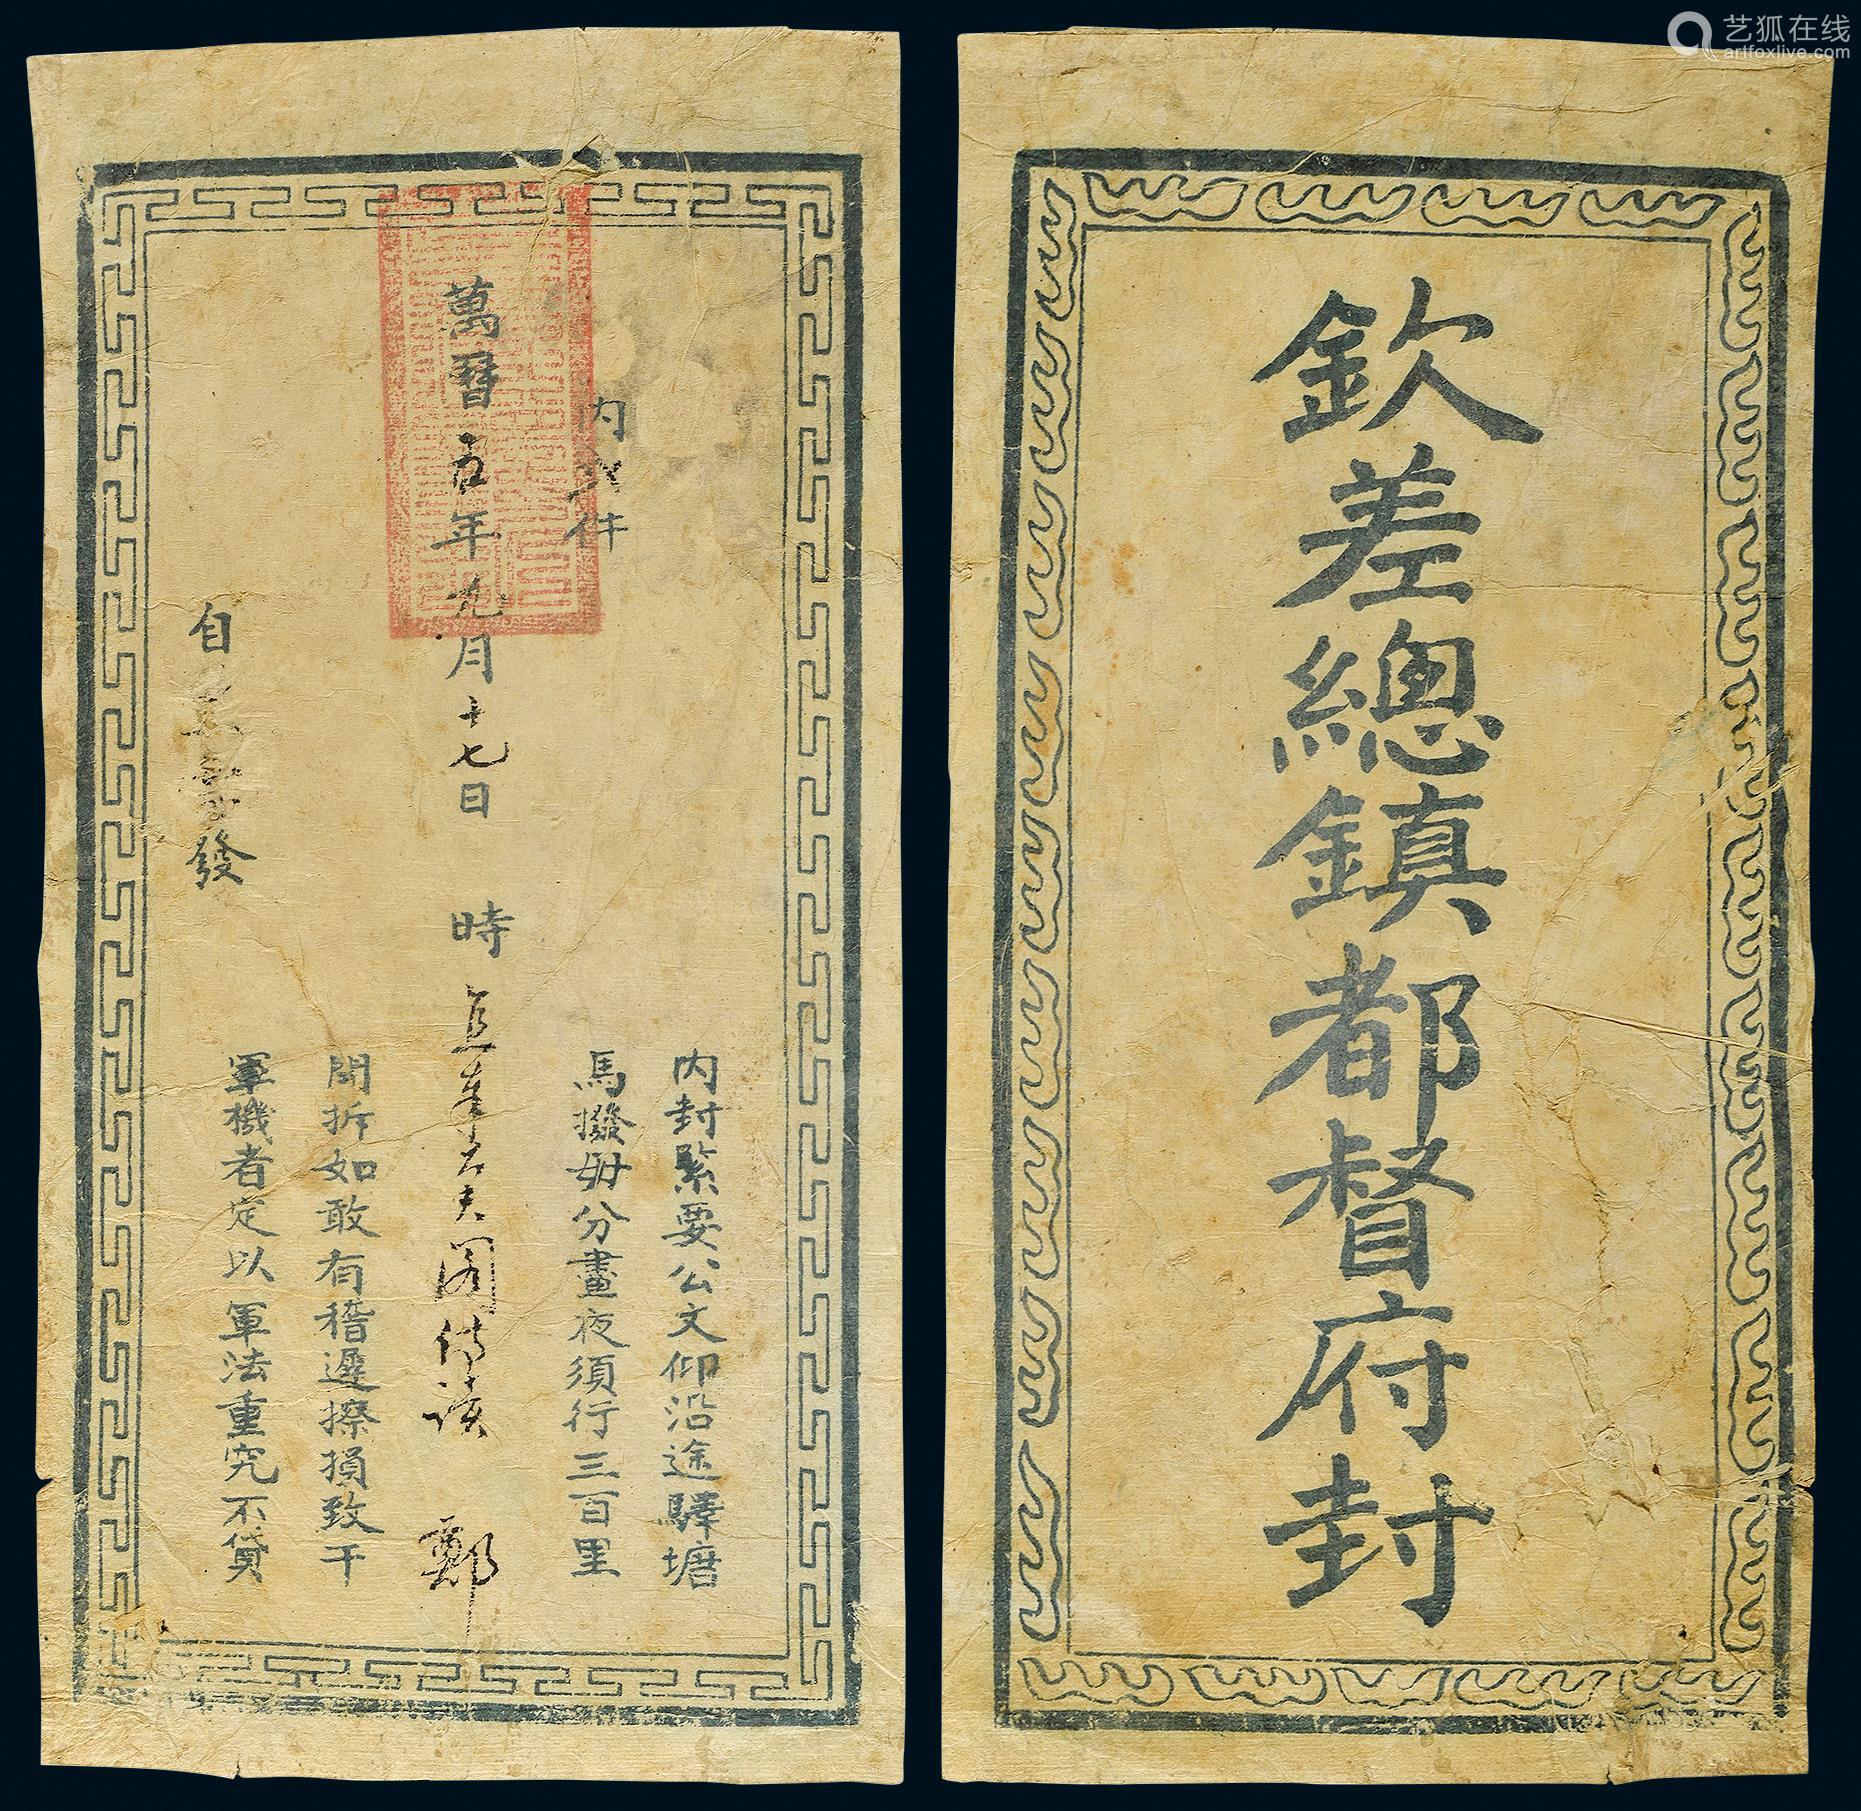 艺狐在线
artfoxlive.com
欽差總鎮都督府封
內封緊要公文仰沿途驛塘
馬撥毋分晝夜須行三百里
內 件
萬曆五年九月十七日 時
開拆如敢有稽遲擦損致干
軍機者定以軍法重究不貸
自 發